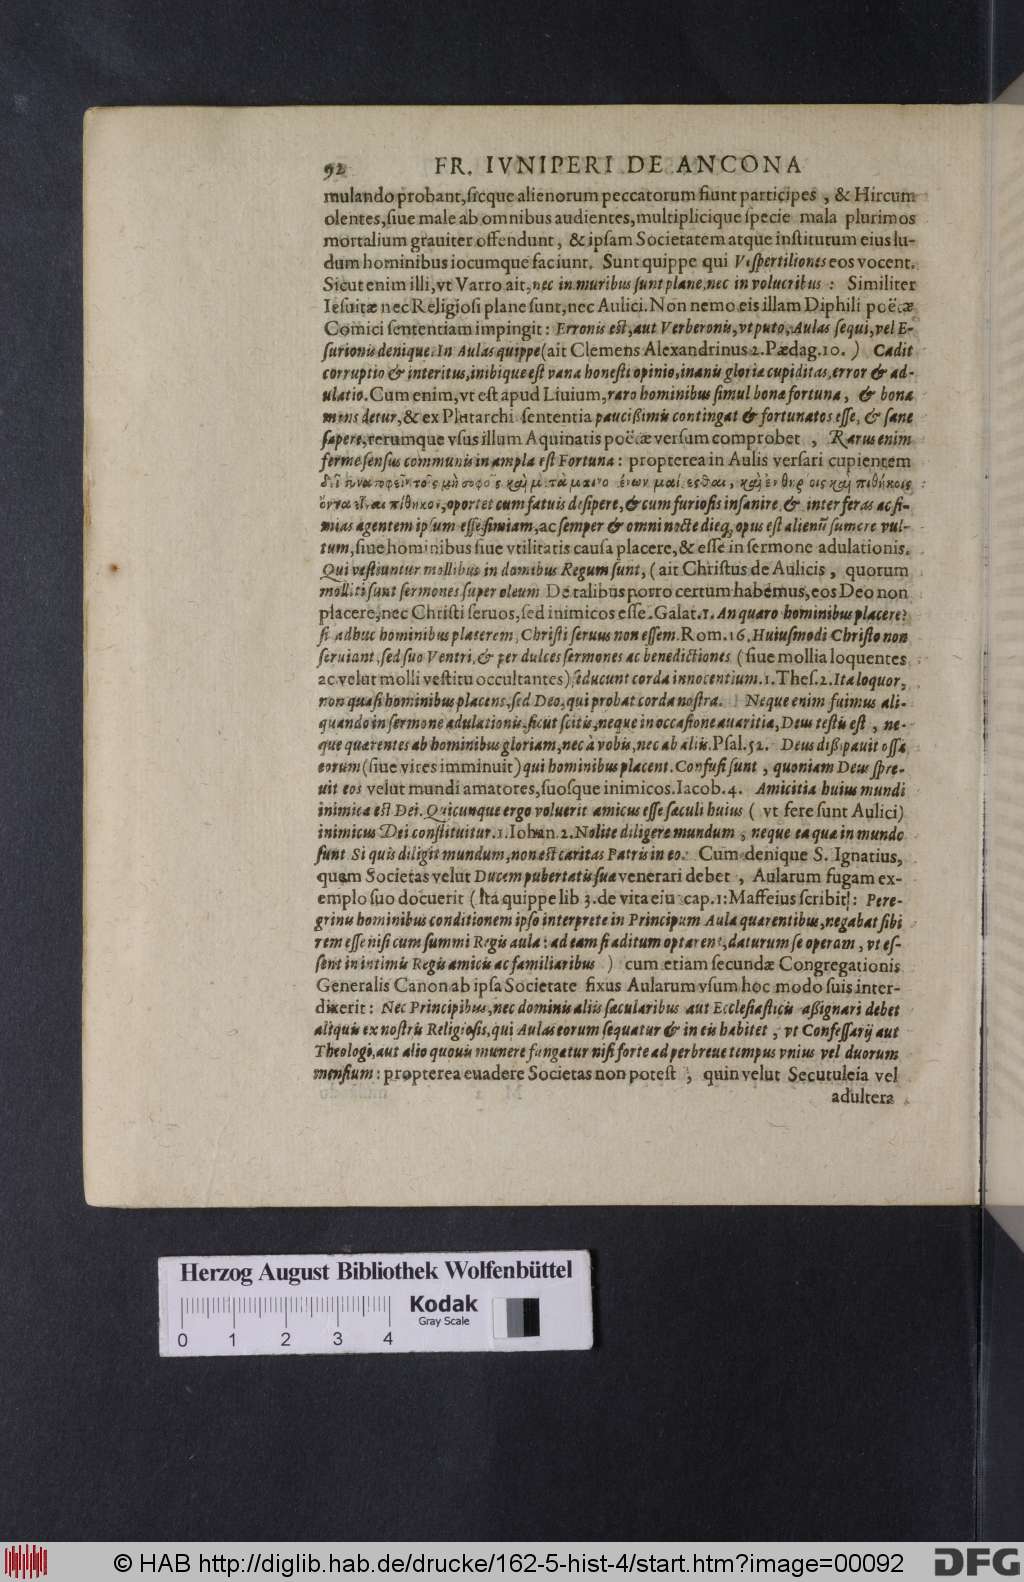 92 FR. IVNIPERI DE ANCONA
mulando probant, ſicque alienorum peccatorum fiunt participes, & Hircum
olentes, ſiue male ab omnibus audientes, multiplicique ſpecie mala plurimos
mortalium grauiter offendunt, & ipſam Societatem atque inſtitutum eius lu-
dum hominibus iocumque faciunt. Sunt quippe qui Veſpertiliones eos vocent.
Sicut enim illi, vt Varro ait, nec in muribus ſunt plane, nec in volucribus : Similiter
Ieſuitæ nec Religioſi plane ſunt, nec Aulici. Non nemo eis illam Diphili poëtæ
Comici ſententiam impingit : Erronis eſt, aut Verberonis, vt puto, Aulas ſequi, vel E-
ſurionis denique. In Aulas quippe (ait Clemens Alexandrinus 2. Pædag. 10. ) Cadit
corruptio & interitus, inibique eſt vana honeſti opinio, inanis gloriæ cupiditas, error & ad-
ulatio. Cum enim, vt eſt apud Liuium, raro hominibus ſimul bona fortuna, & bona
mens detur, & ex Plutarchi ſententia paucißimis contingat & fortunatos eſſe, & ſane
ſapere, rerumque vſus illum Aquinatis poëtæ verſum comprobet , Rarus enim
ferme ſenſus communis in ampla eſt Fortuna : propterea in Aulis verſari cupientem
πίθηκον, oportet cum fatuis deſipere, & cum furioſis inſanire & inter feras ac ſi-
mias agentem ipſum eſſe ſimiam, ac ſemper & omni nocte dieq; opus eſt alienū ſumere vul-
tum, ſiue hominibus ſiue vtilitatis cauſa placere, & eſſe in ſermone adulationis.
Qui veſtiuntur mollibus in domibus Regum ſunt, ( ait Chriſtus de Aulicis , quorum
molliti ſunt ſermones ſuper oleum De talibus porro certum habemus, eos Deo non
placere, nec Chriſti ſeruos, ſed inimicos eſſe. Galat. 1. An quæro hominibus placere?
ſi adhuc hominibus placerem, Chriſti ſeruus non eſſem. Rom. 16. Huiuſmodi Chriſto non
ſeruiant, ſed ſuo Ventri, & per dulces ſermones ac benedictiones ( ſiue mollia loquentes
ac velut molli veſtitu occultantes) ſeducunt corda innocentium. 1. Theſ. 2. Ita loquor,
non quaſi hominibus placens, ſed Deo, qui probat corda noſtra. Neque enim fuimus ali-
quando in ſermone adulationis, ſicut ſcitis, neque in occaſione auaritiæ, Deus teſtis eſt , ne-
que quærentes ab hominibus gloriam, nec à vobis, nec ab aliis. Pſal. 52. Deus dißipauit oſſa
eorum (ſiue vires imminuit) qui hominibus placent. Confuſi ſunt , quoniam Deus ſpre-
uit eos velut mundi amatores, ſuoſque inimicos. Iacob. 4. Amicitia huius mundi
inimica eſt Dei. Quicunque ergo voluerit amicus eſſe ſæculi huius ( vt fere ſunt Aulici)
inimicus Dei conſtituitur. 1. Iohan. 2. Nolite diligere mundum , neque ea quæ in mundo
ſunt Si quis diligit mundum, non eſt caritas Patris in eo. Cum denique S. Ignatius,
quem Societas velut Ducem pubertatis ſuæ venerari debet , Aularum fugam ex-
emplo ſuo docuerit ( Ita quippe lib 3. de vita eius cap. 1: Maffeius ſcribit : Pere-
grinis hominibus conditionem ipſo interprete in Principum Aula quærentibus, negabat ſibi
rem eſſe niſi cum ſummi Regis aula : ad eam ſi aditum optarent, daturum ſe operam , vt eſ-
ſent in intimis Regis amicis ac familiaribus ) cum etiam ſecundæ Congregationis
Generalis Canon ab ipſa Societate fixus Aularum vſum hoc modo ſuis inter-
dixerit : Nec Principibus, nec dominis aliis ſæcularibus aut Eccleſiaſticis aßignari debet
aliquis ex noſtris Religioſis, qui Aulas eorum ſequatur & in eis habitet , vt Confeſſarij aut
Theologi, aut alio quouis munere fungatur niſi forte ad perbreue tempus vnius vel duorum
menſium : propterea euadere Societas non poteſt , quin velut Secutuleia vel
adultera
Herzog August Bibliothek Wolfenbüttel
Kodak
Gray Scale
0 1 2 3 4
© HAB http://diglib.hab.de/drucke/162-5-hist-4/start.htm?image=00092
DFG